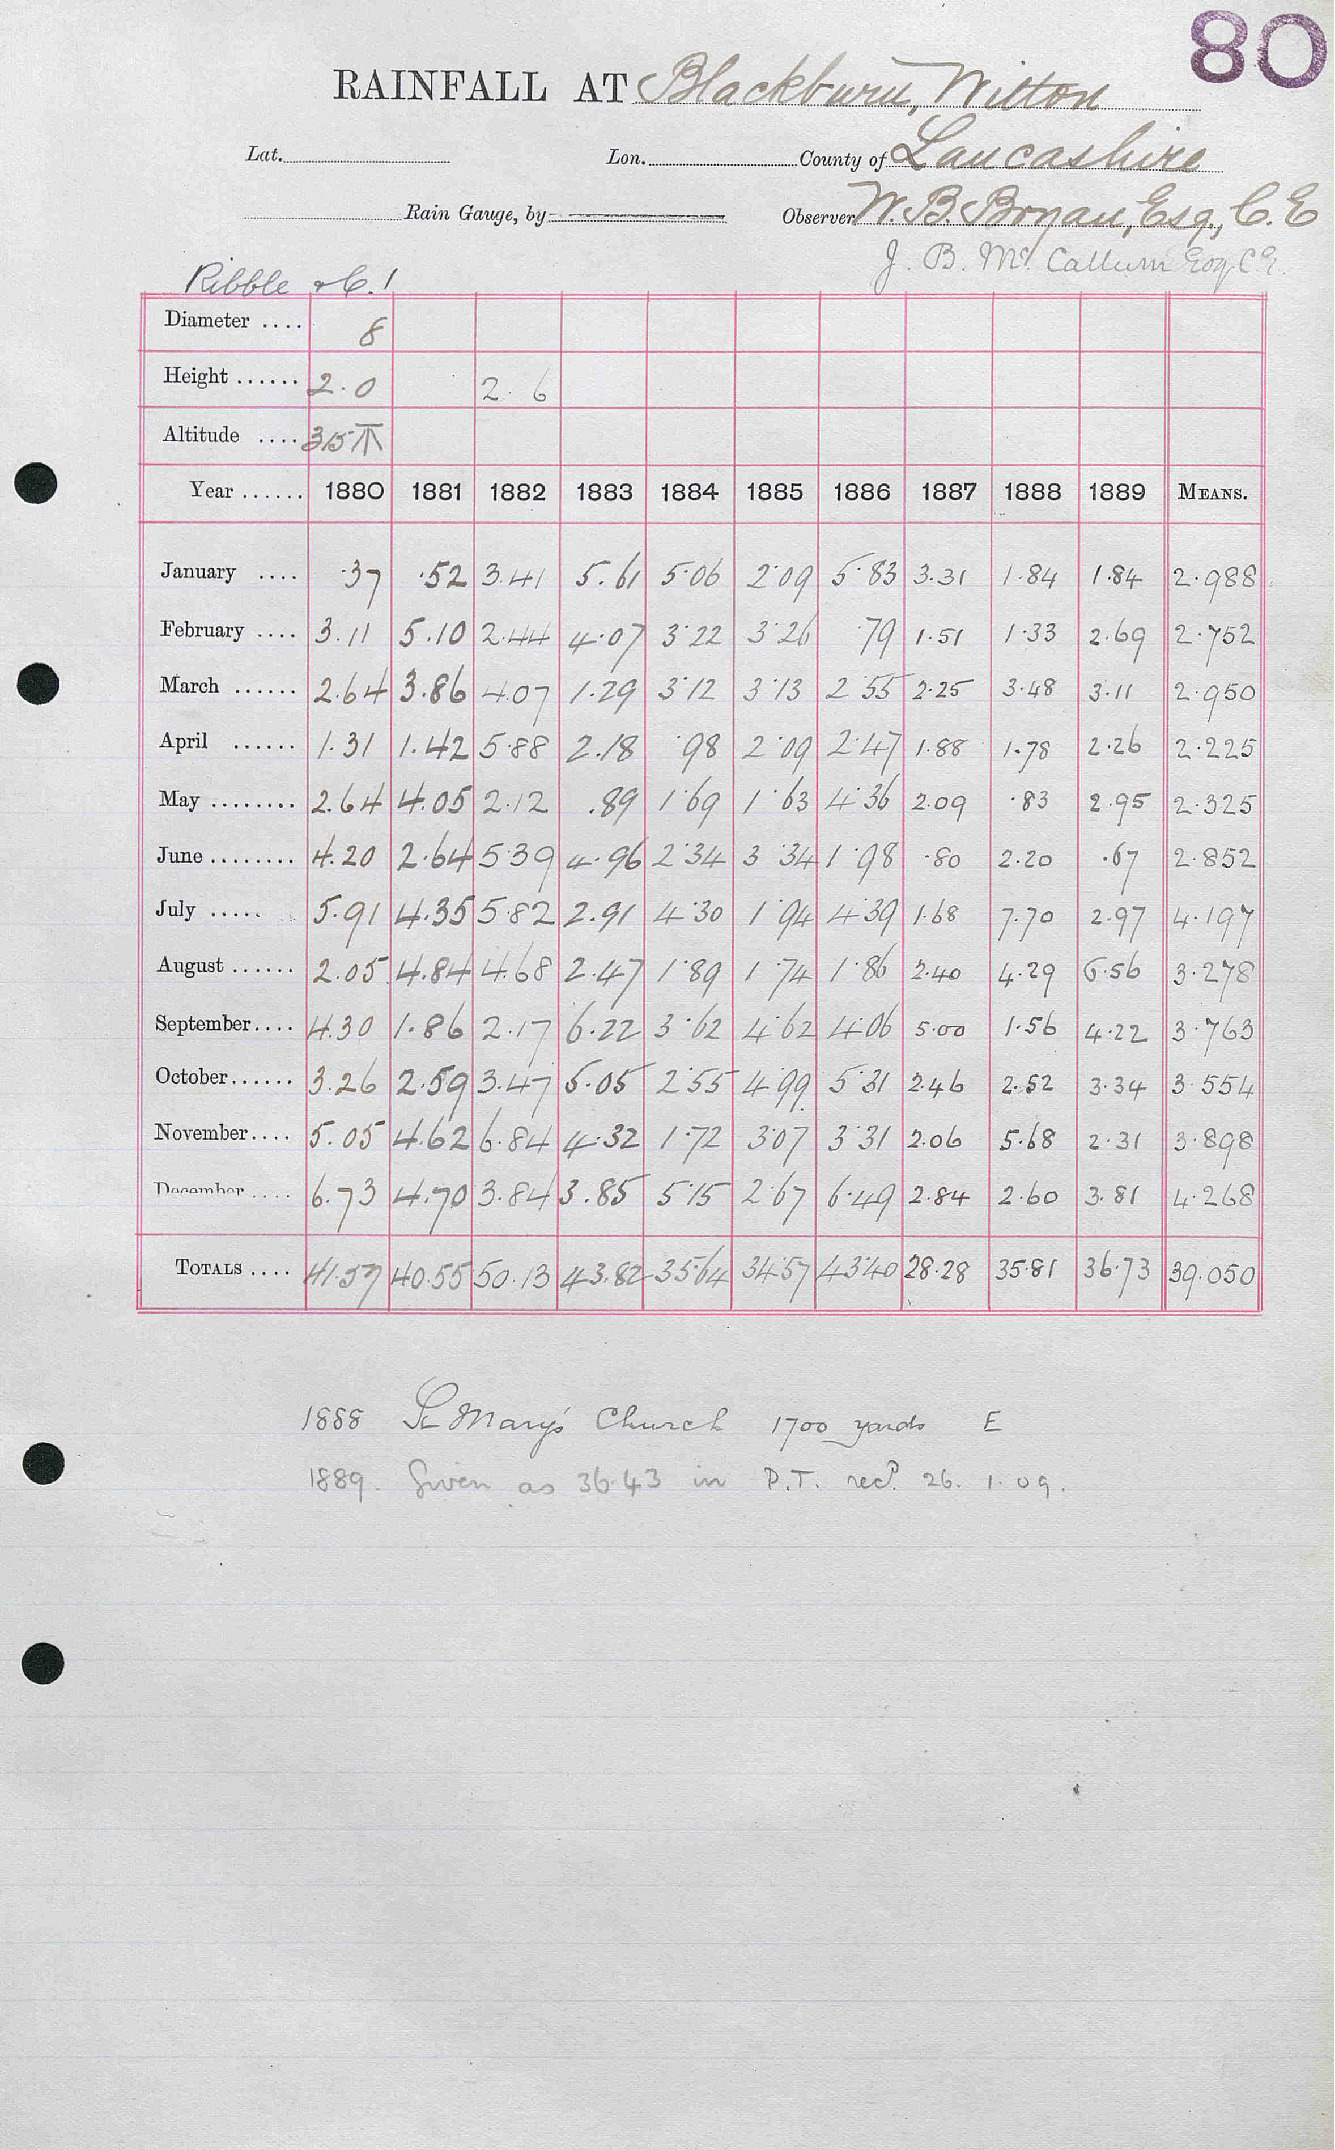 80
RAINFALL AT Blackburn, Witton
Lat. Lon. County of Lancashire
Rain Gauge, by Observer W. B. Bryan, Esq., C.E
J. B. McCallum Esq C E.
Ribble &c. 1
Diameter .... 8
Height ...... 2.0 2.6
Altitude .... 315
Year ...... 1880 1881 1882 1883 1884 1885 1886 1887 1888 1889 MEANS.
January .... .37 .52 3.41 5.61 5.06 2.09 5.83 3.31 1.84 1.84 2.988
February .... 3.11 5.10 2.44 4.07 3.22 3.26 .79 1.51 1.33 2.69 2.752
March ...... 2.64 3.86 4.07 1.29 3.12 3.13 2.55 2.25 3.48 3.11 2.950
April ...... 1.31 1.42 5.88 2.18 .98 2.09 2.47 1.88 1.78 2.26 2.225
May ........ 2.64 4.05 2.12 .89 1.69 1.63 4.36 2.09 .83 2.95 2.325
June ........ 4.20 2.64 5.39 4.96 2.34 3.34 1.98 .80 2.20 .67 2.852
July ..... 5.91 4.35 5.82 2.91 4.30 1.94 4.39 1.68 7.70 2.97 4.197
August ...... 2.05 4.84 4.68 2.47 1.89 1.74 1.86 2.40 4.29 6.56 3.278
September.... 4.30 1.86 2.17 6.22 3.62 4.62 4.06 5.00 1.56 4.22 3.763
October...... 3.26 2.59 3.47 5.05 2.55 4.99 5.31 2.46 2.52 3.34 3.554
November.... 5.05 4.62 6.84 4.32 1.72 3.07 3.31 2.06 5.68 2.31 3.898
December .... 6.73 4.70 3.84 3.85 5.15 2.67 6.49 2.84 2.60 3.81 4.268
TOTALS .... 41.57 40.55 50.13 43.82 35.64 34.57 43.40 28.28 35.81 36.73 39.050
1888 St Mary's Church 1700 yards E
1889. Given as 36.43 in P.T. recd. 26. 1. 09.